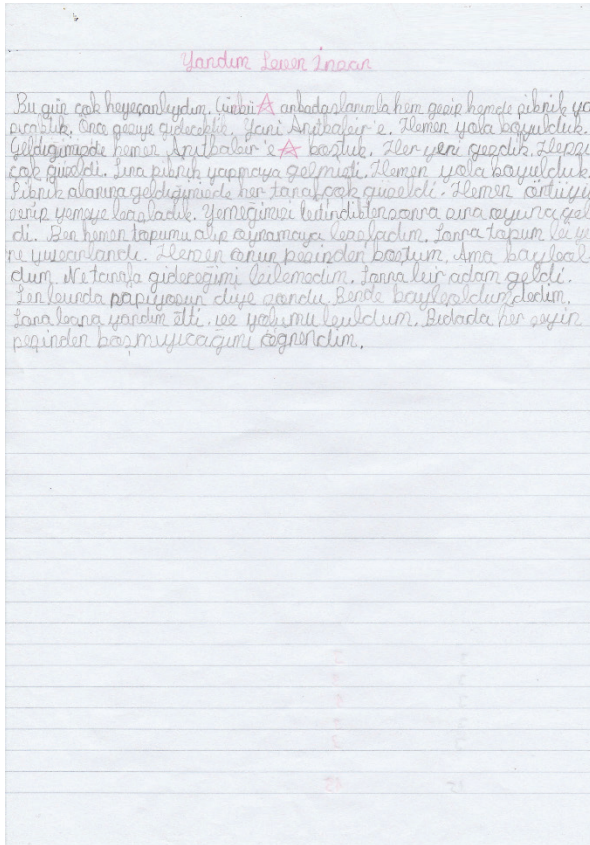 Yardım Seven İnsan
Bu gün çok heyecanlıydım. Çünkü arkadaşlarımla hem gezip hemde piknik ya
pıcaktık. Önce geziye gidecektik. Yani Anıtkabir'e. Hemen yola koyulduk.
Geldiğimizde hemen Anıtkabir'e koştuk. Her yeri gezdik. Hepsi
çok güzeldi. Sıra piknik yapmaya gelmişti. Hemen yola koyulduk.
Piknik alanına geldiğimizde her taraf çok güzeldi. Hemen örtüyü
serip yemeye başladık. Yemeğimizi bitirdikten sonra sıra oyuna gel
di. Ben hemen topumu alıp oynamaya başladım. Sonra topum bi ye
re yuvarlandı. Hemen onun peşinden koştum. Ama kaybol
dum. Ne tarafa gideceğimi bilemedim. Sonra bir adam geldi.
Sen burda napıyosun diye sordu. Bende kayboldum dedim.
Sana bana yardım etti. ve yolumu buldum. Burdada her şeyin
peşinden koşmuyıcağımı öğrendim.